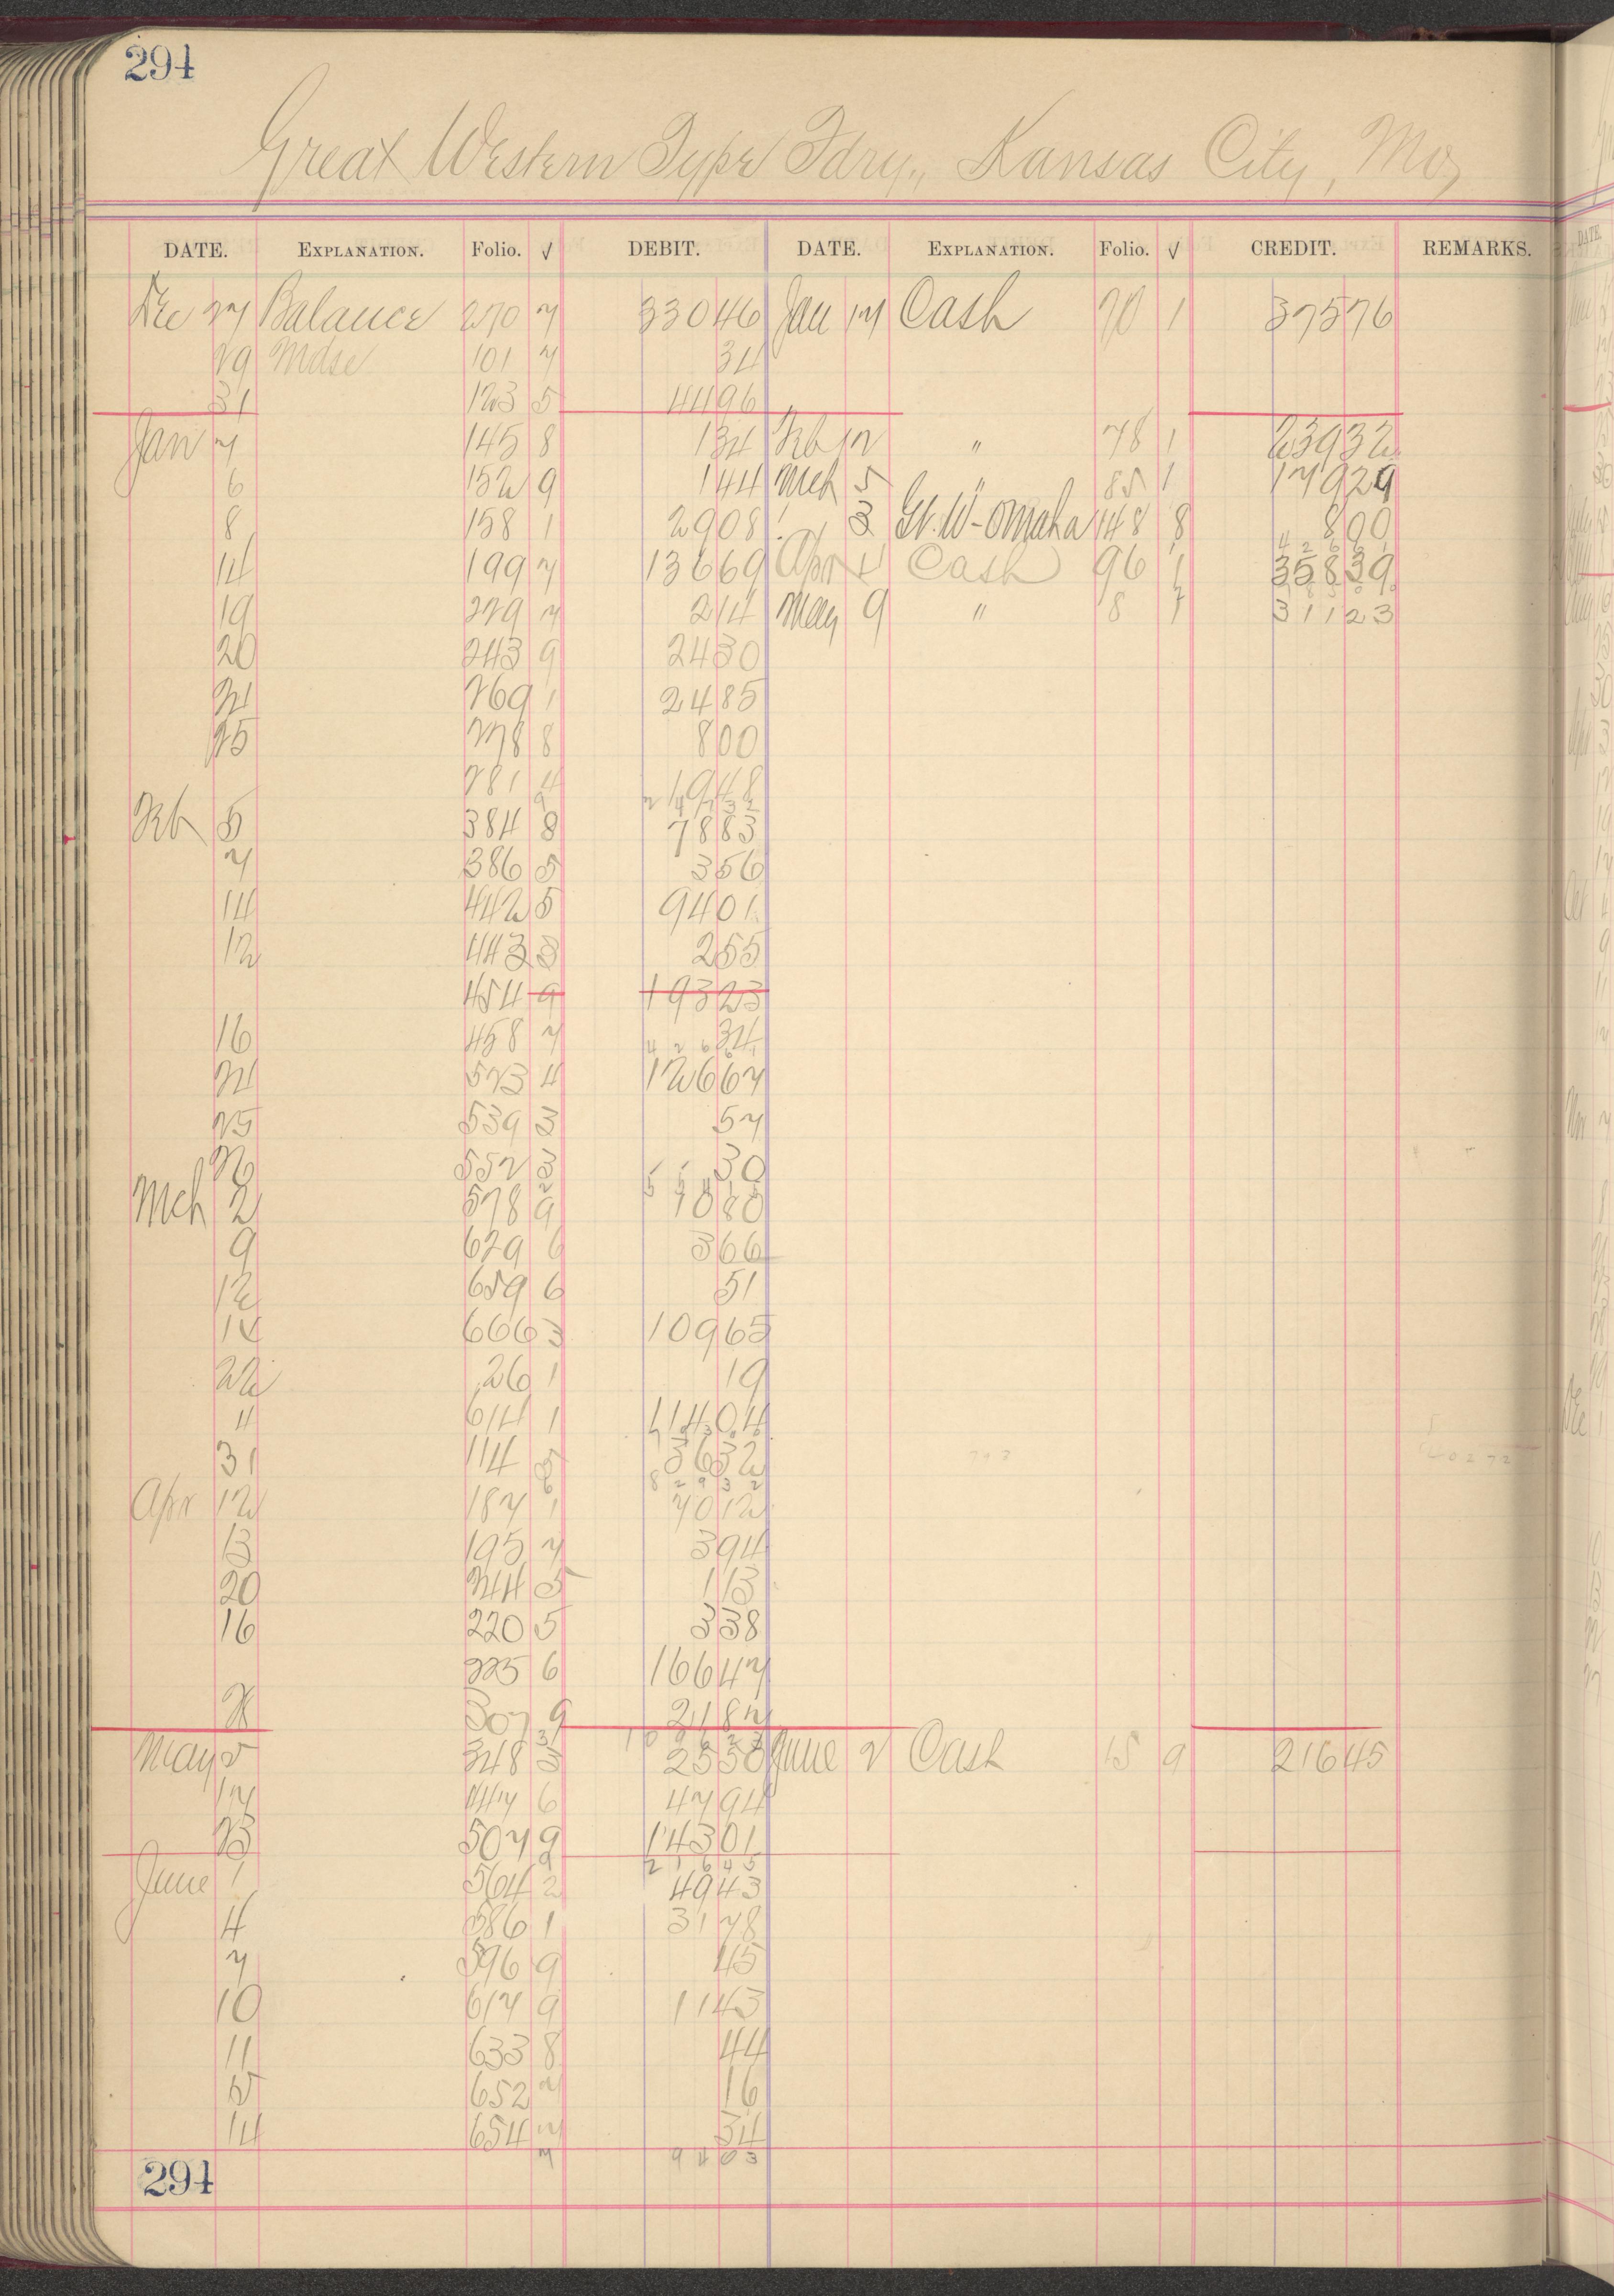 294
Great Western Type Fdry., Kansas City, Mo,
DATE. EXPLANATION. Folio. √ DEBIT. DATE. EXPLANATION. Folio. √ CREDIT. REMARKS.
Dec 27 Balance 270 7 330 46 Jan 17 Cash 70 1 375 76
29 Mdse 101 7 34
31 123 5 44 96
Jan 7 145 8 1 34 Feb 12 " 78 1 239 32
6 152 9 1 44 Mch 5 " 85 1 179 29
8 158 1 29 08 3 Gt. W-Omaha 148 8 8 00
14 199 7 136 69 Apr Cash 96 1 358 39
19 229 7 2 14 May 9 " 8 7 311 23
20 243 9 24 30
21 269 1 24 85
25 278 8 8 00
281 4 19 48
Feb 5 384 8 78 83
7 386 5 3 56
14 442 5 94 01
12 443 3 2 55
454 9 193 23
16 458 7 34
21 523 4 126 67
25 539 3 57
26 552 3 30
Mch 2 578 9 70 80
9 629 6 3 66
12 659 6 51
14 666 3 109 65
22 26 1 19
11 614 1 114 04
31 114 5 36 32
82932
Apr 12 187 1 70 12
13 195 7 3 94
20 244 5 1 13
16 220 5 3 38
225 6 166 47
307 9 21 87
May 5 348 3 25 50 June 2 Cash 15 9 216 45
17 447 6 47 94
23 507 9 143 01
21645
June 1 564 2 49 43
4 586 1 31 78
7 596 9 45
10 617 9 11 43
11 633 8 44
15 652 7 16
14 654 7 34
7 94 03
294